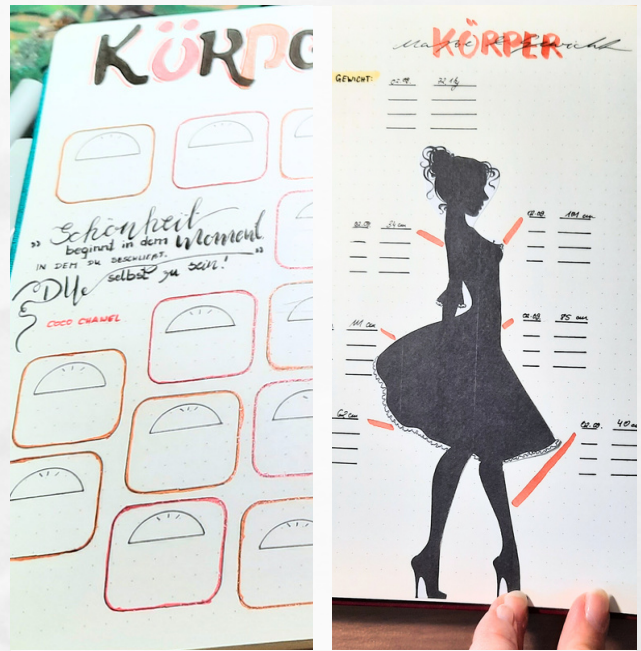 KÖRPE
„Schönheit
beginnt in dem Moment
IN DEM DU BESCHLIEßT,
DU selbst zu sein!“
COCO CHANEL
KÖRPER
Maße & Gewicht
GEWICHT:
02.09. 101 cm
34 cm
111 cm
02.09. 85 cm
02.09. 40 cm